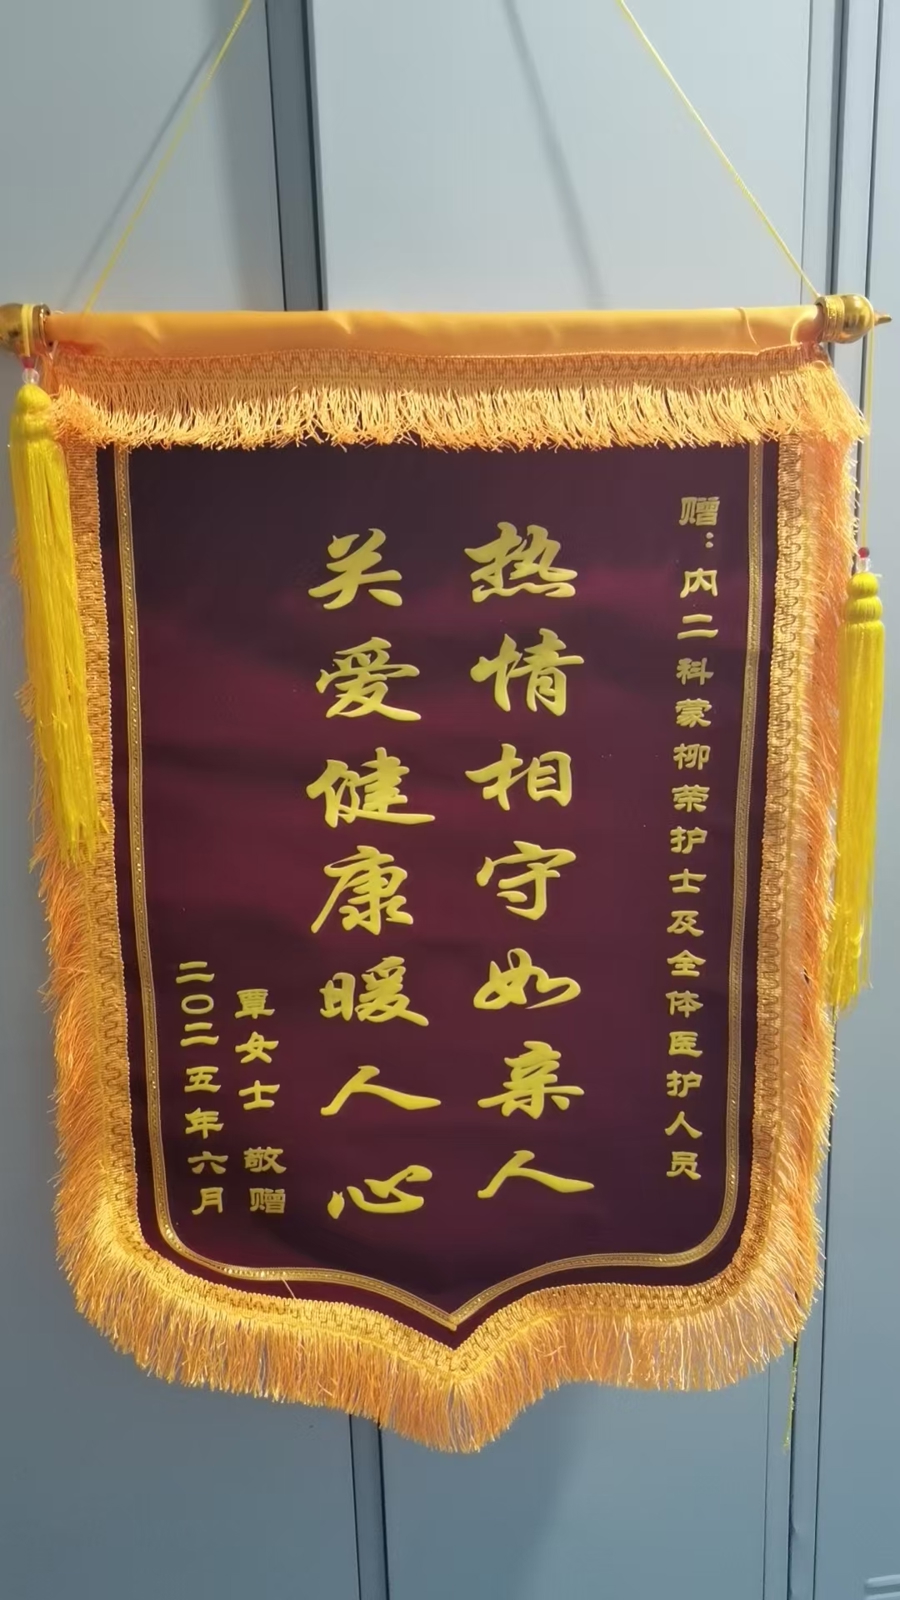 赠：内二科蒙柳荣护士及全体医护人员
热情相守如亲人
关爱健康暖人心
覃女士 敬赠
二〇二五年六月